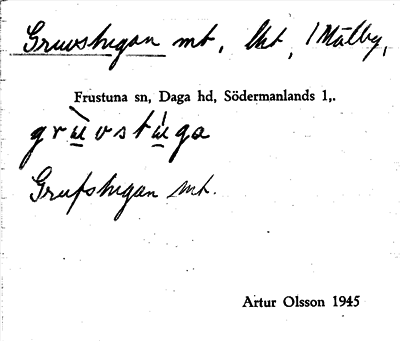 Gruvstugan mt, lht, 1 Mälby,
Frustuna sn, Daga hd, Södermanlands l,.
grùvstùga
Grufstugan mt.
Artur Olsson 1945